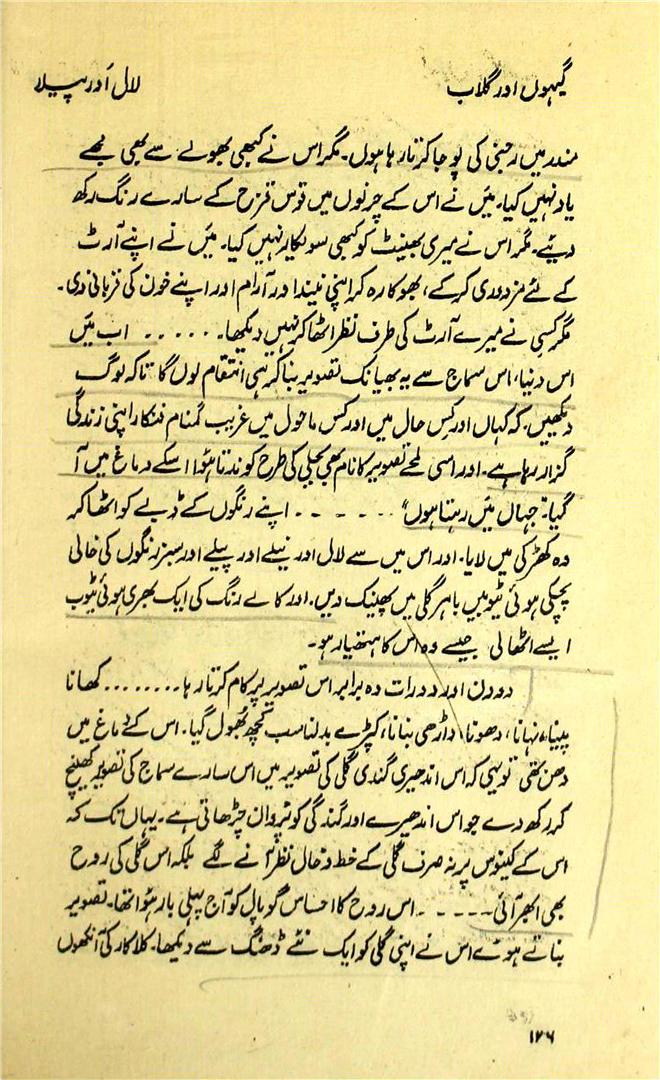 گیہوں اور گلاب
لال اَور پیلا
مندر میں رجنی کی پوجا کرتا رہا ہوں۔ مگر اس نے کبھی بھولے سے بھی مجھے
یاد نہیں کیا۔ میَں نے اس کے چرنوں میں قوس قزح کے سارے رنگ رکھ
دیئے۔ مگر اس نے میری بھینٹ کو کبھی سویکار نہیں کیا۔ میَں نے اپنے آرٹ
کے لئے مزدوری کر کے، بھوکا رہ کر اپنی نیند اور آرام اور اپنے خون کی قربانی دی۔
مگر کسی نے میرے آرٹ کی طرف نظر اٹھا کر نہیں دیکھا۔ ..... اب میَں
اس دنیا، اس سماج سے یہ بھیانک تصویر بنا کر ہی انتقام لوں گا تاکہ لوگ
دیکھیں۔ کہ کہاں اور کِس حال میں اور کس ماحول میں غریب گمنام فنکار اپنی زندگی
گزار رہا ہے۔ اور اسی لمحے تصویر کا نام بھی بجلی کی طرح کوندتا ہوٗا اسکے دماغ میں آ
گیا۔ "جہاں میَں رہتا ہوں" ...... اپنے رنگوں کے ڈبے کو اٹھا کر
وہ کھڑکی میں لایا۔ اور اس میں سے لال اور نیلے اور پیلے اور سبز رنگوں کی خالی
پچکی ہوئی ٹیوبیں باہر گلی میں پھینک دیں۔ اور کالے رنگ کی ایک بھری ہوئی ٹیوب
ایسے اٹھا لی جیسے وہ اس کا ہتھیار ہو۔
دو دن اور دو رات وہ برابر اس تصویر پر کام کرتا رہا ........ کھانا
پینا، نہانا، دھونا، داڑھی بنانا، کپڑے بدلنا سب کچھ بھُول گیا۔ اس کے دماغ میں
دھن تھی تو یہی کہ اس اندھیری گندی گلی کی تصویر میں اس سارے سماج کی تصویر کھینچ
کر رکھ دے جو اس اندھیرے اور گندگی کو پروان چڑھاتی ہے۔ یہاں تک کہ
اس کے کینوس پر نہ صرف گلی کے خط و خال نظر آنے لگے بلکہ اس گلی کی روح
بھی ابھر آئی ..... اس روح کا احساس گوپال کو آج پہلی بار ہوٗا تھا۔ تصویر
بناتے ہوئے اس نے اپنی گلی کو ایک نئے ڈھنگ سے دیکھا۔ کلاکار کی آنکھوں
۱۲۶